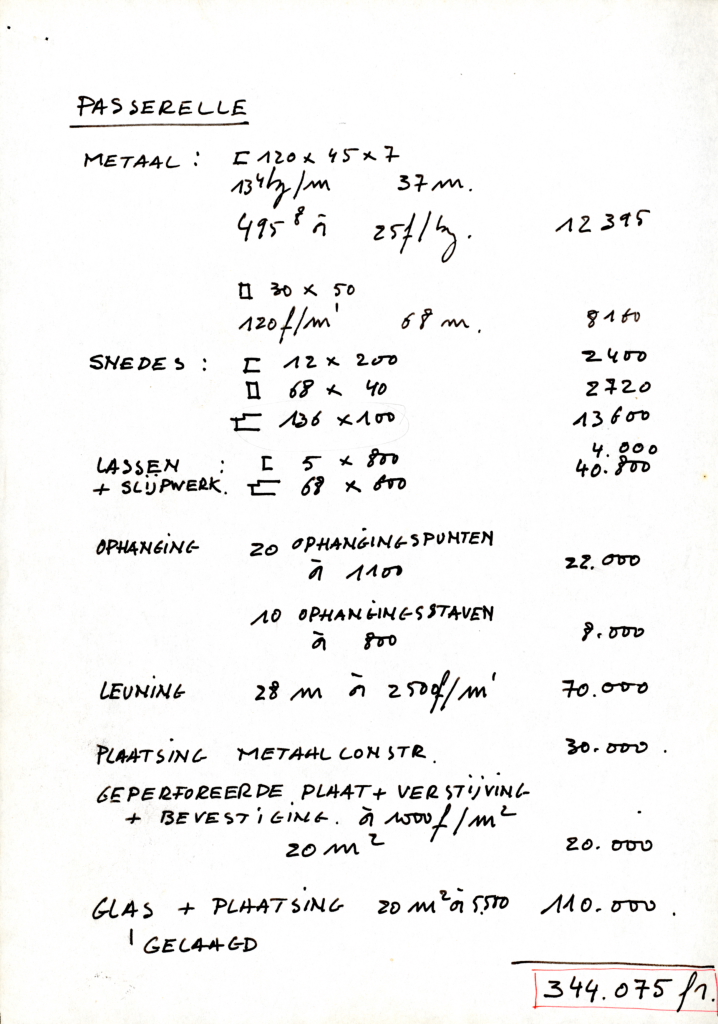 PASSERELLE
METAAL : ⊏ 120 x 45 x 7
13⁴kg/m 37 m.
495⁸ à 25f/kg. 12 395
▯ 30 x 50
120f/m' 68 m. 8160
SNEDES : ⊏ 12 x 200 2400
▯ 68 x 40 2720
136 x 100 13600
LASSEN : ⊏ 5 x 800 4.000
+ SLIJPWERK. 68 x 600 40.800
OPHANGING 20 OPHANGINGSPUNTEN
à 1100 22.000
10 OPHANGINGSSTAVEN
à 800 8.000
LEUNING 28 m à 2500f/m' 70.000
PLAATSING METAALCONSTR. 30.000.
GEPERFOREERDE PLAAT + VERSTIJVING
+ BEVESTIGING. à 1000f/m²
20 m² 20.000
GLAS + PLAATSING 20 m² à 5.500 110.000.
GELAAGD
344.075 fr.